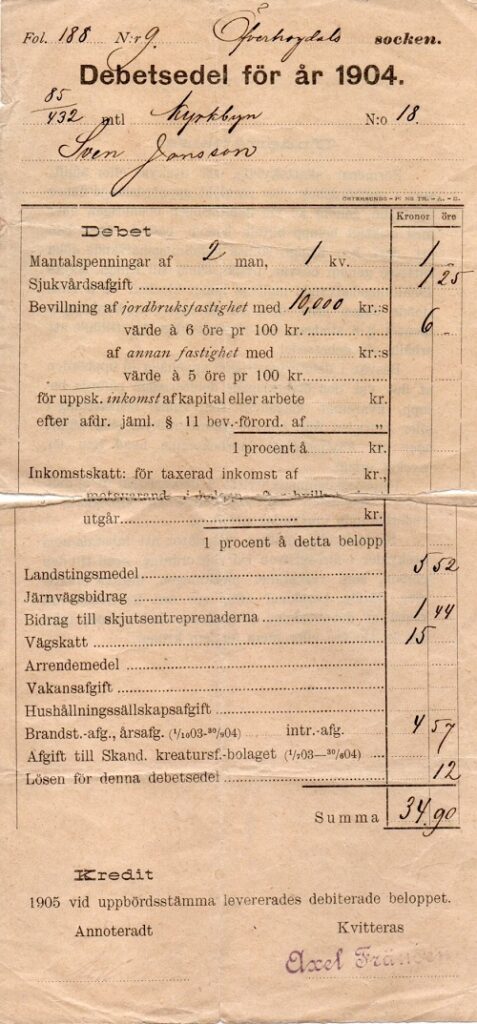 Fol. 188 N:r 9. Öfverhogdals socken.
Debetsedel för år 1904.
85/432 mtl Kyrkbyn N:o 18.
Sven Jonsson
Kronor öre
Debet
Mantalspenningar af 2 man, 1 kv. 1 „
Sjukvårdsafgift 1 25
Bevillning af jordbruksfastighet med 10,000 kr:s
värde à 6 öre pr 100 kr. 6 „
af annan fastighet med kr.:s
värde à 5 öre pr 100 kr.
för uppsk. inkomst af kapital eller arbete kr.
efter afdr. jäml. § 11 bev.-förord. af „
1 procent å kr.
Inkomstskatt: för taxerad inkomst af kr.,
utgår kr.
1 procent å detta belopp
Landstingsmedel 5 52
Järnvägsbidrag
Bidrag till skjutsentreprenaderna 1 44
Vägskatt 15
Arrendemedel
Vakansafgift
Hushållningssällskapsafgift
Brandst.-afg., årsafg. (1/10 03-30/9 04) intr.-afg. 4 57
Afgift till Skand. kreatursf.-bolaget (1/7 03—30/6 04)
Lösen för denna debetsedel 12
Summa 34 90
Kredit
1905 vid uppbördsstämma levererades debiterade beloppet.
Annoteradt Kvitteras
Axel